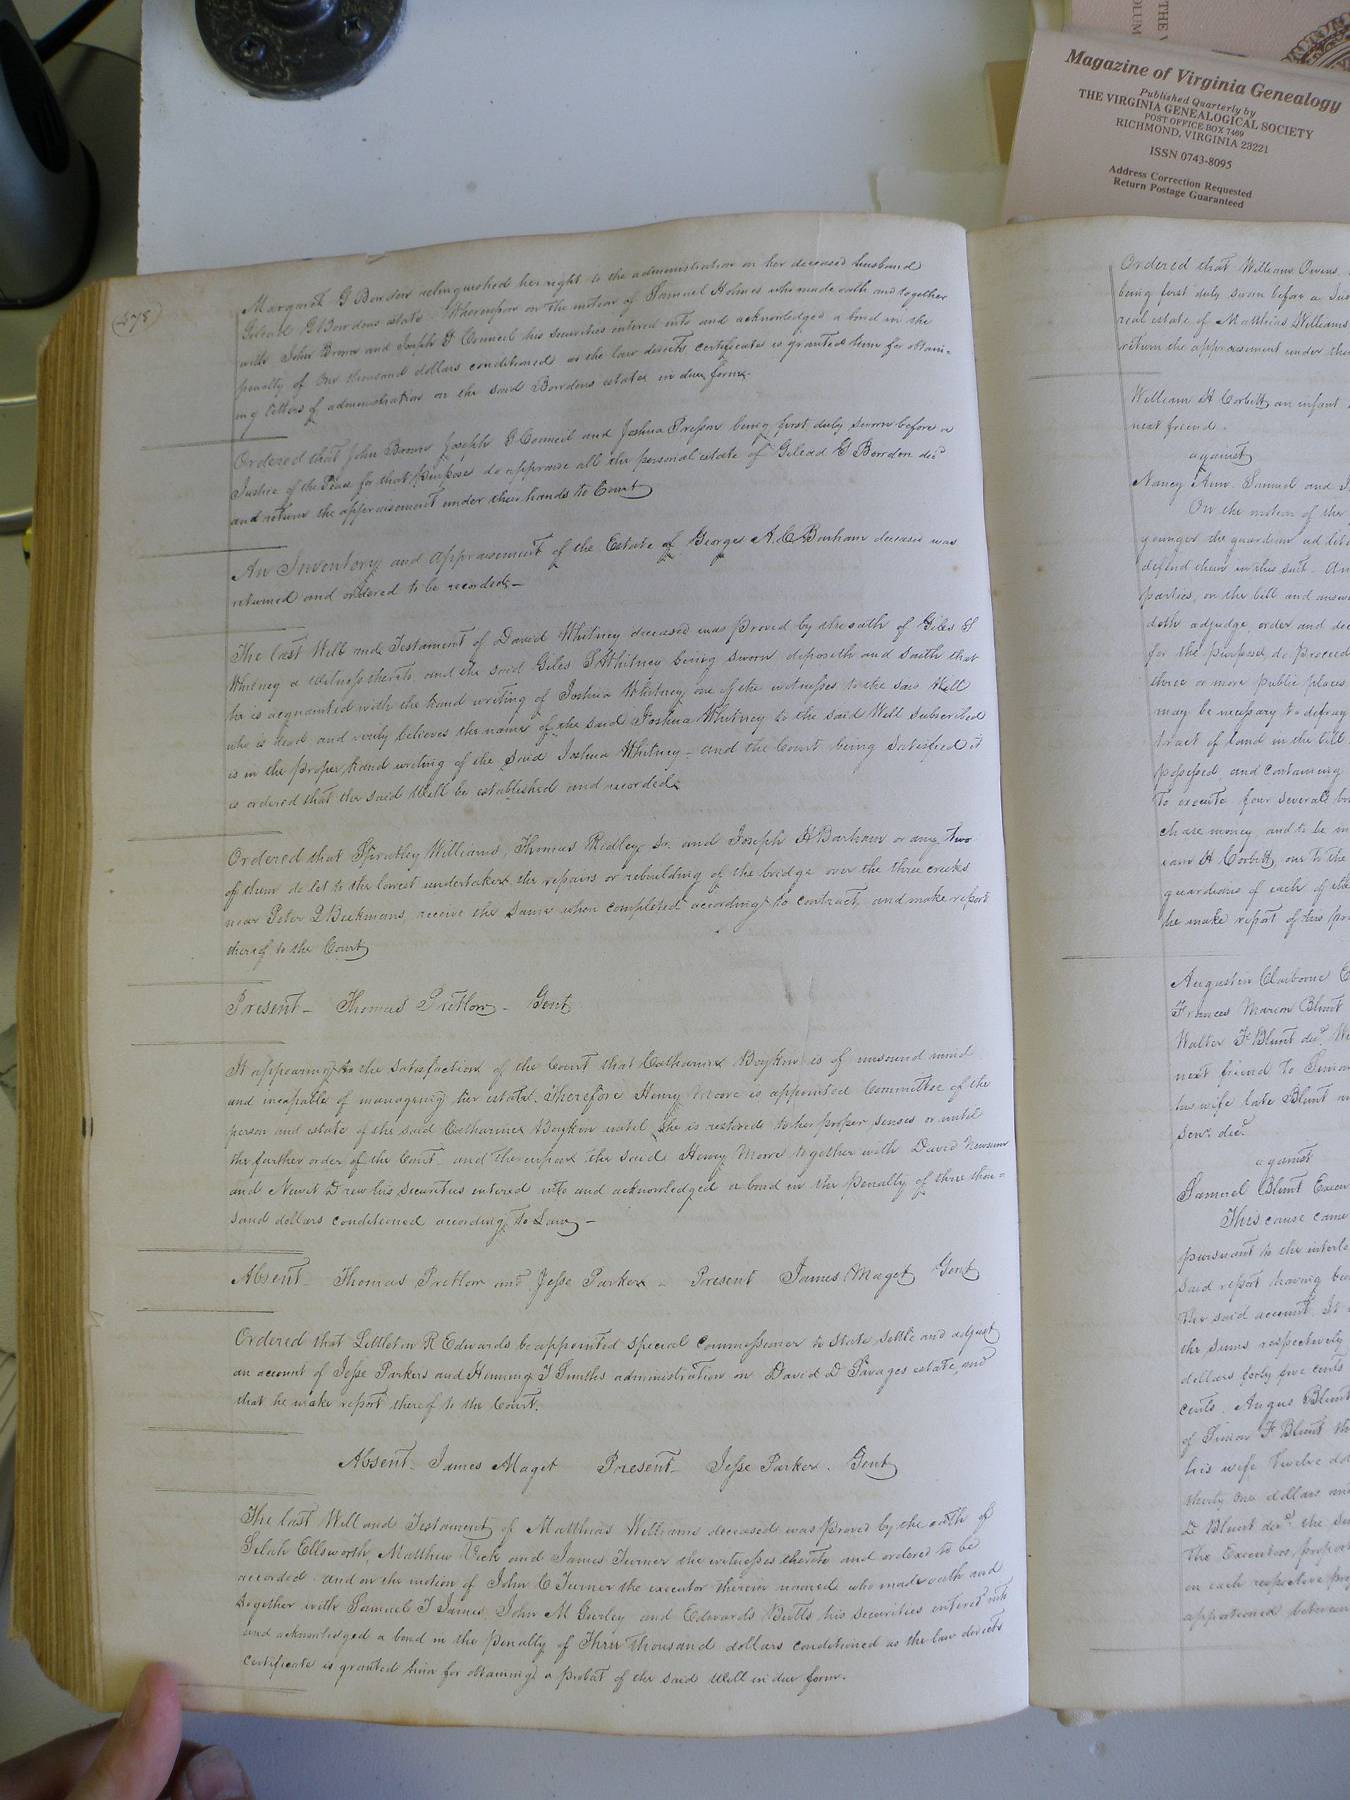 THE V
OLUM
Magazine of Virginia Genealogy
Published Quarterly by
THE VIRGINIA GENEALOGICAL SOCIETY
POST OFFICE BOX 7469
RICHMOND, VIRGINIA 23221
ISSN 0743-8095
Address Correction Requested
Return Postage Guaranteed
278
Margaret G Bowden relinquished her right to the administration on her deceased husband
Gilead G Bowdens estate. Whereupon on the motion of Samuel Holmes who made oath and together
with John Brown and Joseph G Council his securities entered into and acknowledged a bond in the
penalty of One thousand dollars conditioned as the law directs certificate is granted him for obtain-
ing letters of administration on the said Bowdens estate in due form.
Ordered that John Brown Joseph G Council and Joshua Presson being first duly sworn before a
Justice of the Peace for that purpose do appraise all the personal estate of Gilead G Bowden decd
and return the appraisement under their hands to Court
An Inventory and appraisement of the Estate of George A. C Barham deceased was
returned and ordered to be recorded—
The last Will and Testament of David Whitney deceased was proved by the oath of Giles S
Whitney a witness thereto, and the said Giles S Whitney being sworn deposeth and saith that
he is acquainted with the hand writing of Joshua Whitney one of the witnesses to the said Will
who is dead and verily believes the name of the said Joshua Whitney to the said Will subscribed
is in the proper hand writing of the said Joshua Whitney – and the Court being satisfied it
is ordered that the said Will be established and recorded
Ordered that Spratley Williams, Thomas Ridley Sr. and Joseph H Barham or any two
of them do let to the lowest undertaker the repairs or rebuilding of the bridge over the three creeks
near Peter Beekmans, receive the same when completed according to contract, and make report
thereof to the Court
Present – Thomas Pretlow – Gent
It appearing to the satisfaction of the Court that Catharine Boykin is of unsound mind
and incapable of managing her estate. Therefore Henry Moore is appointed Committee of the
person and estate of the said Catharine Boykin until she is restored to her proper senses or until
the further order of the Court and thereupon the said Henry Moore together with David Newsum
and Newit Drew his securities entered into and acknowledged a bond in the penalty of three thou=
sand dollars conditioned according to Law –
Absent Thomas Pretlow and Jesse Parker – Present James Maget Gent
Ordered that Littleton R Edwards be appointed special commissioner to state settle and adjust
an account of Jesse Parkers and Henning T Smiths administration on David D Savages estate, and
that he make report thereof to the Court.
Absent – James Maget Present – Jesse Parker. Gent
The last Will and Testament of Matthias Williams deceased was proved by the oath of
Selah Ellsworth, Matthew Vick and James Turner the witnesses thereto and ordered to be
recorded and on the motion of John C Turner the executor therein named who made oath and
together with Samuel T James, John M Gurley and Edwards Butts his securities entered into
and acknowledged a bond in the penalty of Three thousand dollars conditioned as the law directs
certificate is granted him for obtaining a probat of the said Will in due form.
Ordered that William Owens
being first duly sworn before a Jus
real estate of Matthias Williams
return the appraisement under the
William H Corbett an infant
next friend.
against
Nancy Ann. Samuel and
On the motion of the
younger the guardian ad lit
defend them in this suit. An
parties, on the bill and answ
doth adjudge, order and de
for the purpose do proceed
three or more public places
may be necessary to defray
tract of land in the bill
possessed, and containing
to execute four several bo
chase money, and to be in
iam H Corbett, one to the
guardians of each of the
he make report of his pro
Augustin Claiborne
Frances Marion Blunt
Walter F Blunt decd
next friend to Simon
his wife late Blunt an
Senr. decd
against
Samuel Blunt Execu
This cause came
pursuant to the interl
said report having bee
the said account. It
the sums respectively
dollars forty five cents
cents. Angus Blunt
of Simon F Blunt th
his wife Twelve do
thirty One dollars and
D Blunt decd. the su
the Executors, propor
on each respective pro
apportioned between